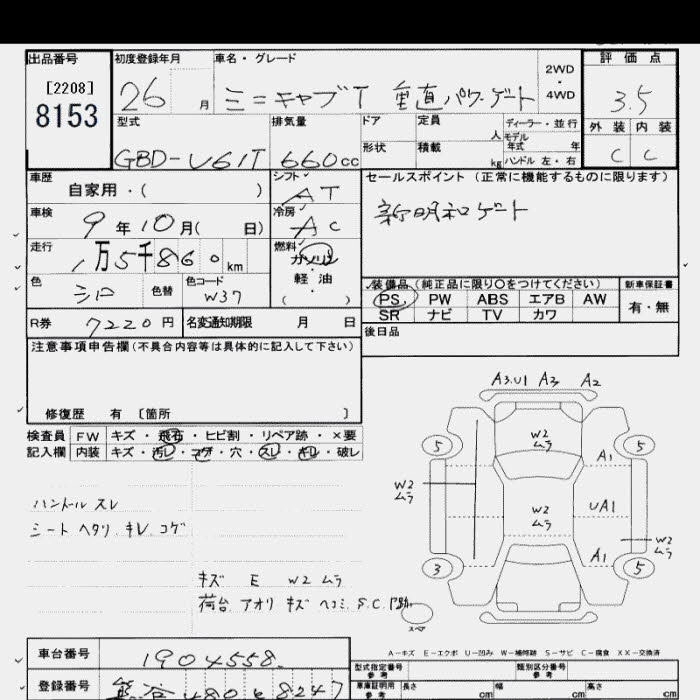 出品番号 初度登録年月 車名・グレード 2WD・4WD 評価点
[2208]
8153
26 月 ミニキャブT 垂直パワーゲート 3.5
型式 排気量 ドア 定員 人 ディーラー・並行 外装 内装
モデル年式 年
GBD-U61T 660cc 形状 積載 kg ハンドル 左・右 C C
車歴 シフト セールスポイント (正常に機能するものに限ります)
自家用・( ) AT
車検 冷房 新明和ゲート
9年10月( 日) AC
走行 燃料
1万5千860km ガソリン
軽油
( )
色 色替 色コード
シロ W37
装備品(純正品に限り○をつけてください) 新車保証書
PS PW ABS エアB AW 有・無
SR ナビ TV カワ
R券 7220円 名変通知期限 月 日
後日品
注意事項申告欄(不具合内容等は具体的に記入して下さい)
修復歴 有 〔箇所 〕
検査員 FW キズ・飛石・ヒビ割・リペア跡・×要
記入欄 内装 キズ・汚レ・コゲ・穴・スレ・キレ・破レ
ハンドル スレ
シート ヘタリ キレ コゲ
キズ E W2 ムラ
荷台 アオリ キズ ヘコミ S.C
A3.U1 A3 A2
5 W2 ムラ 5
A1
W2 ムラ
W2 ムラ UA1
W2 ムラ
A1
3 5
スペア
A-キズ E-エクボ U-凹み W-補修跡 S-サビ C-腐食 XX-交換済
車台番号 1904558
型式指定番号 参考 類別区分番号 参考
登録番号 熊谷 480 8247
車庫証明用 参考 長さ cm 幅 cm 高さ cm